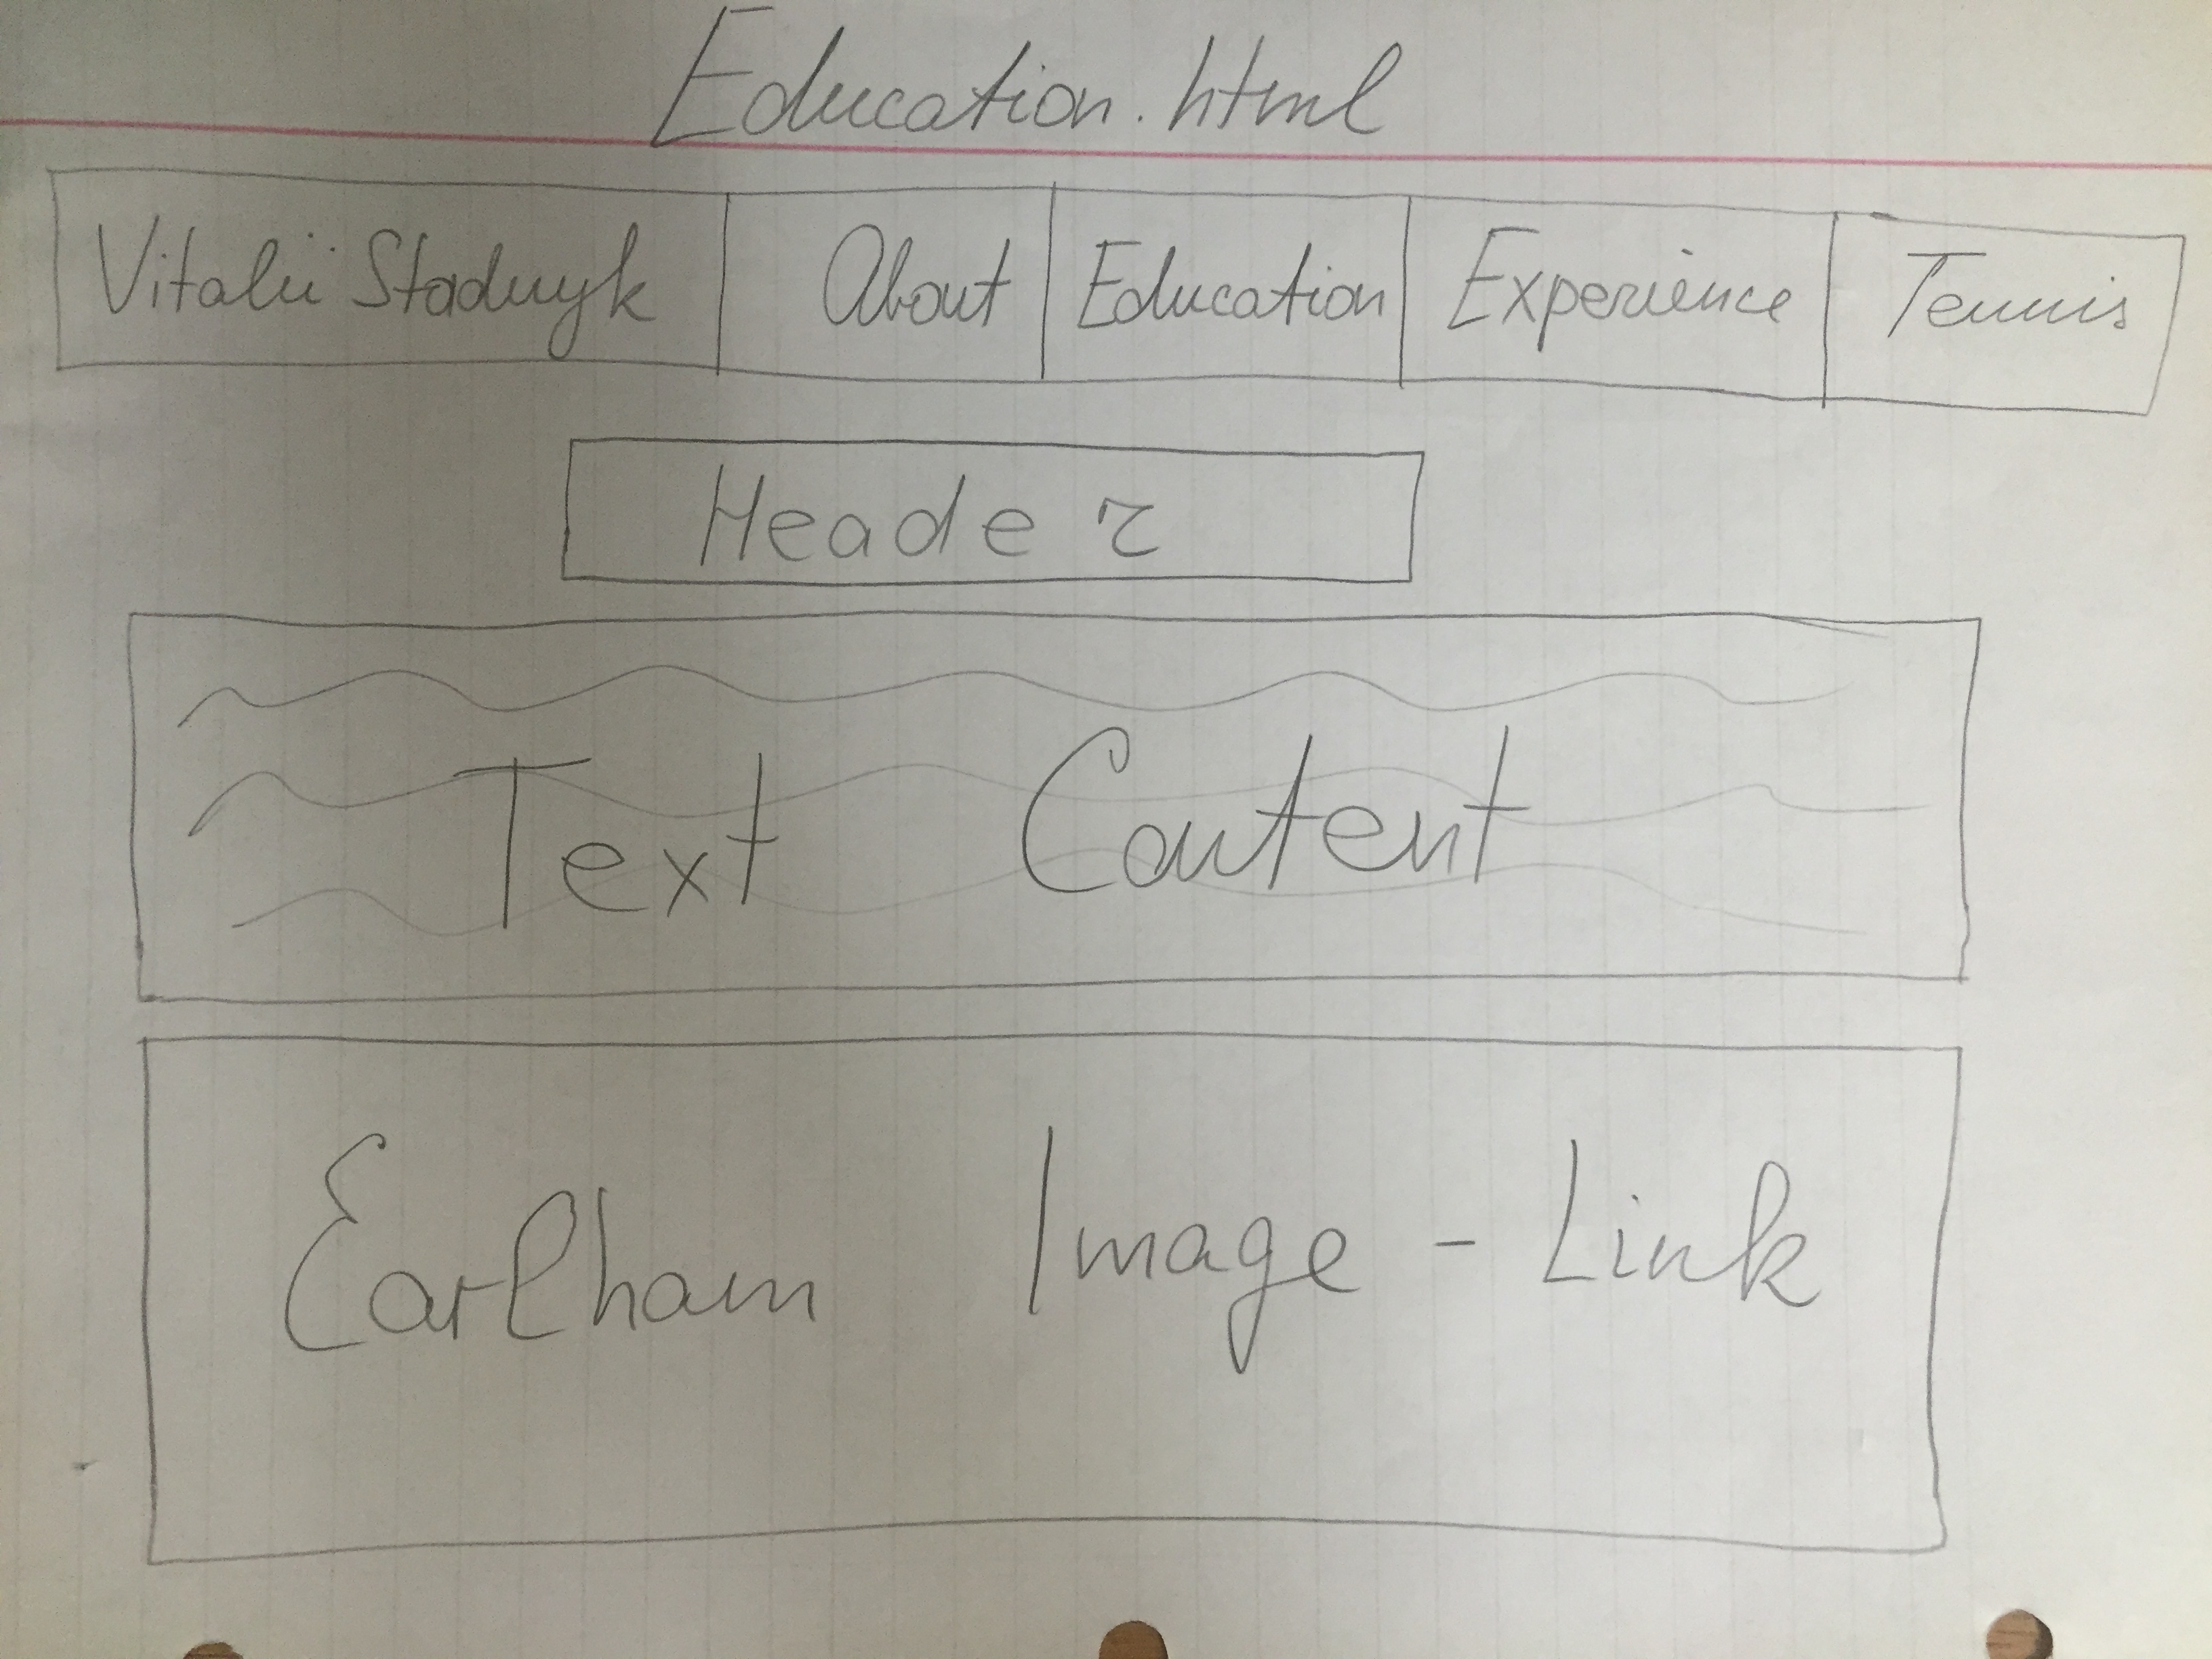 Education.html
Vitalii Stadnyk About Education Experience Tennis
Header
Text Content
Earlham Image - Link